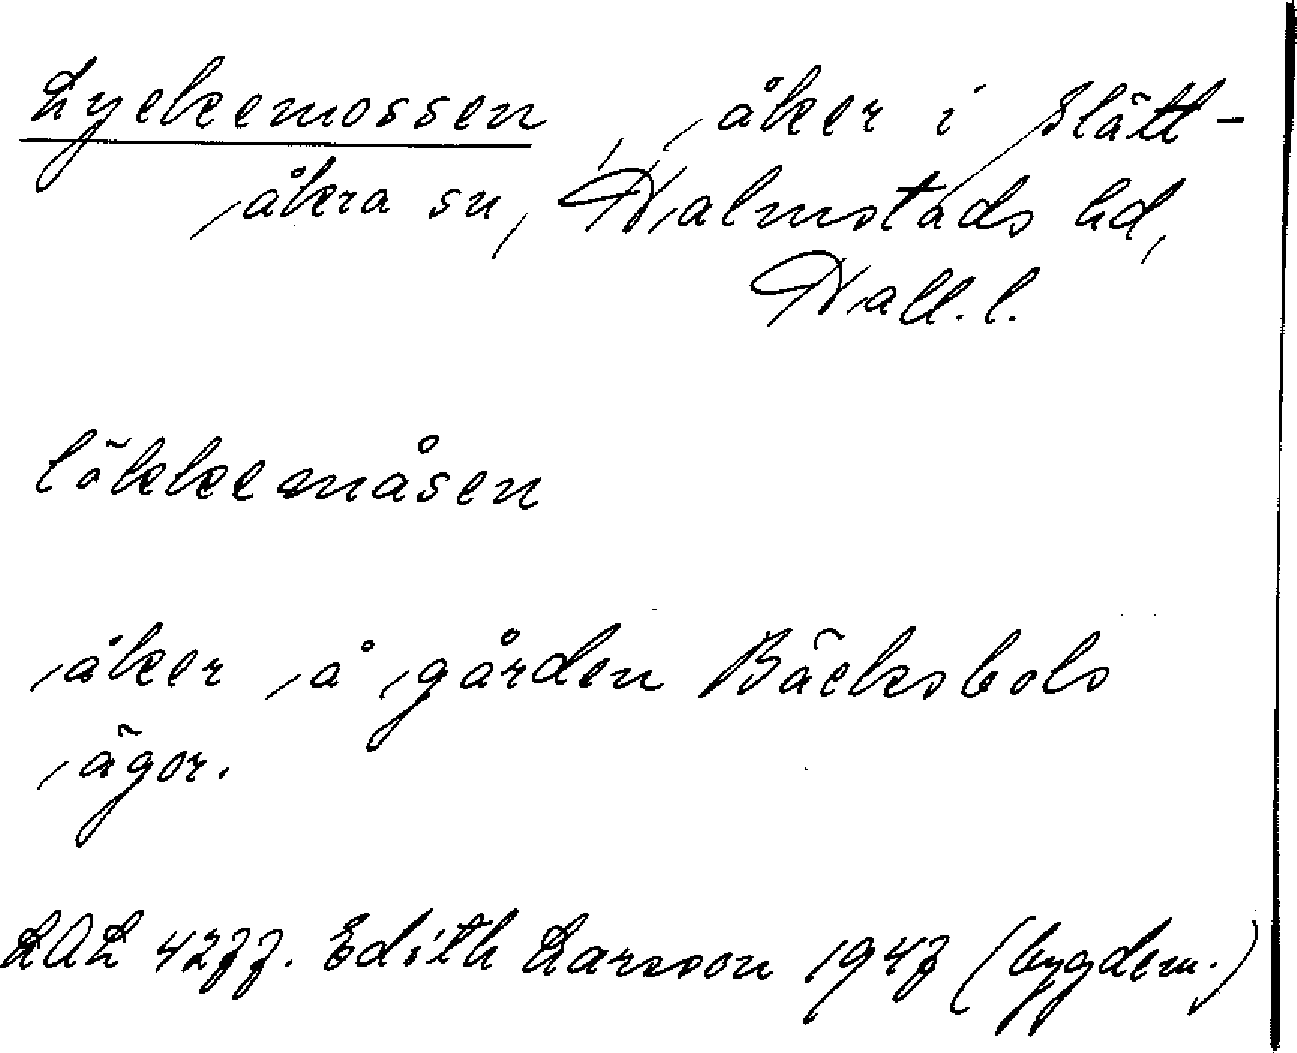 Lyckemossen, åker i Slätt-
åkra sn, Halmstads hd,
Hall. l.
lökkemåsen
åker å gården Bäcksbols
ägor.
LAL 4277. Edith Larsson 1947 (bygdem.)